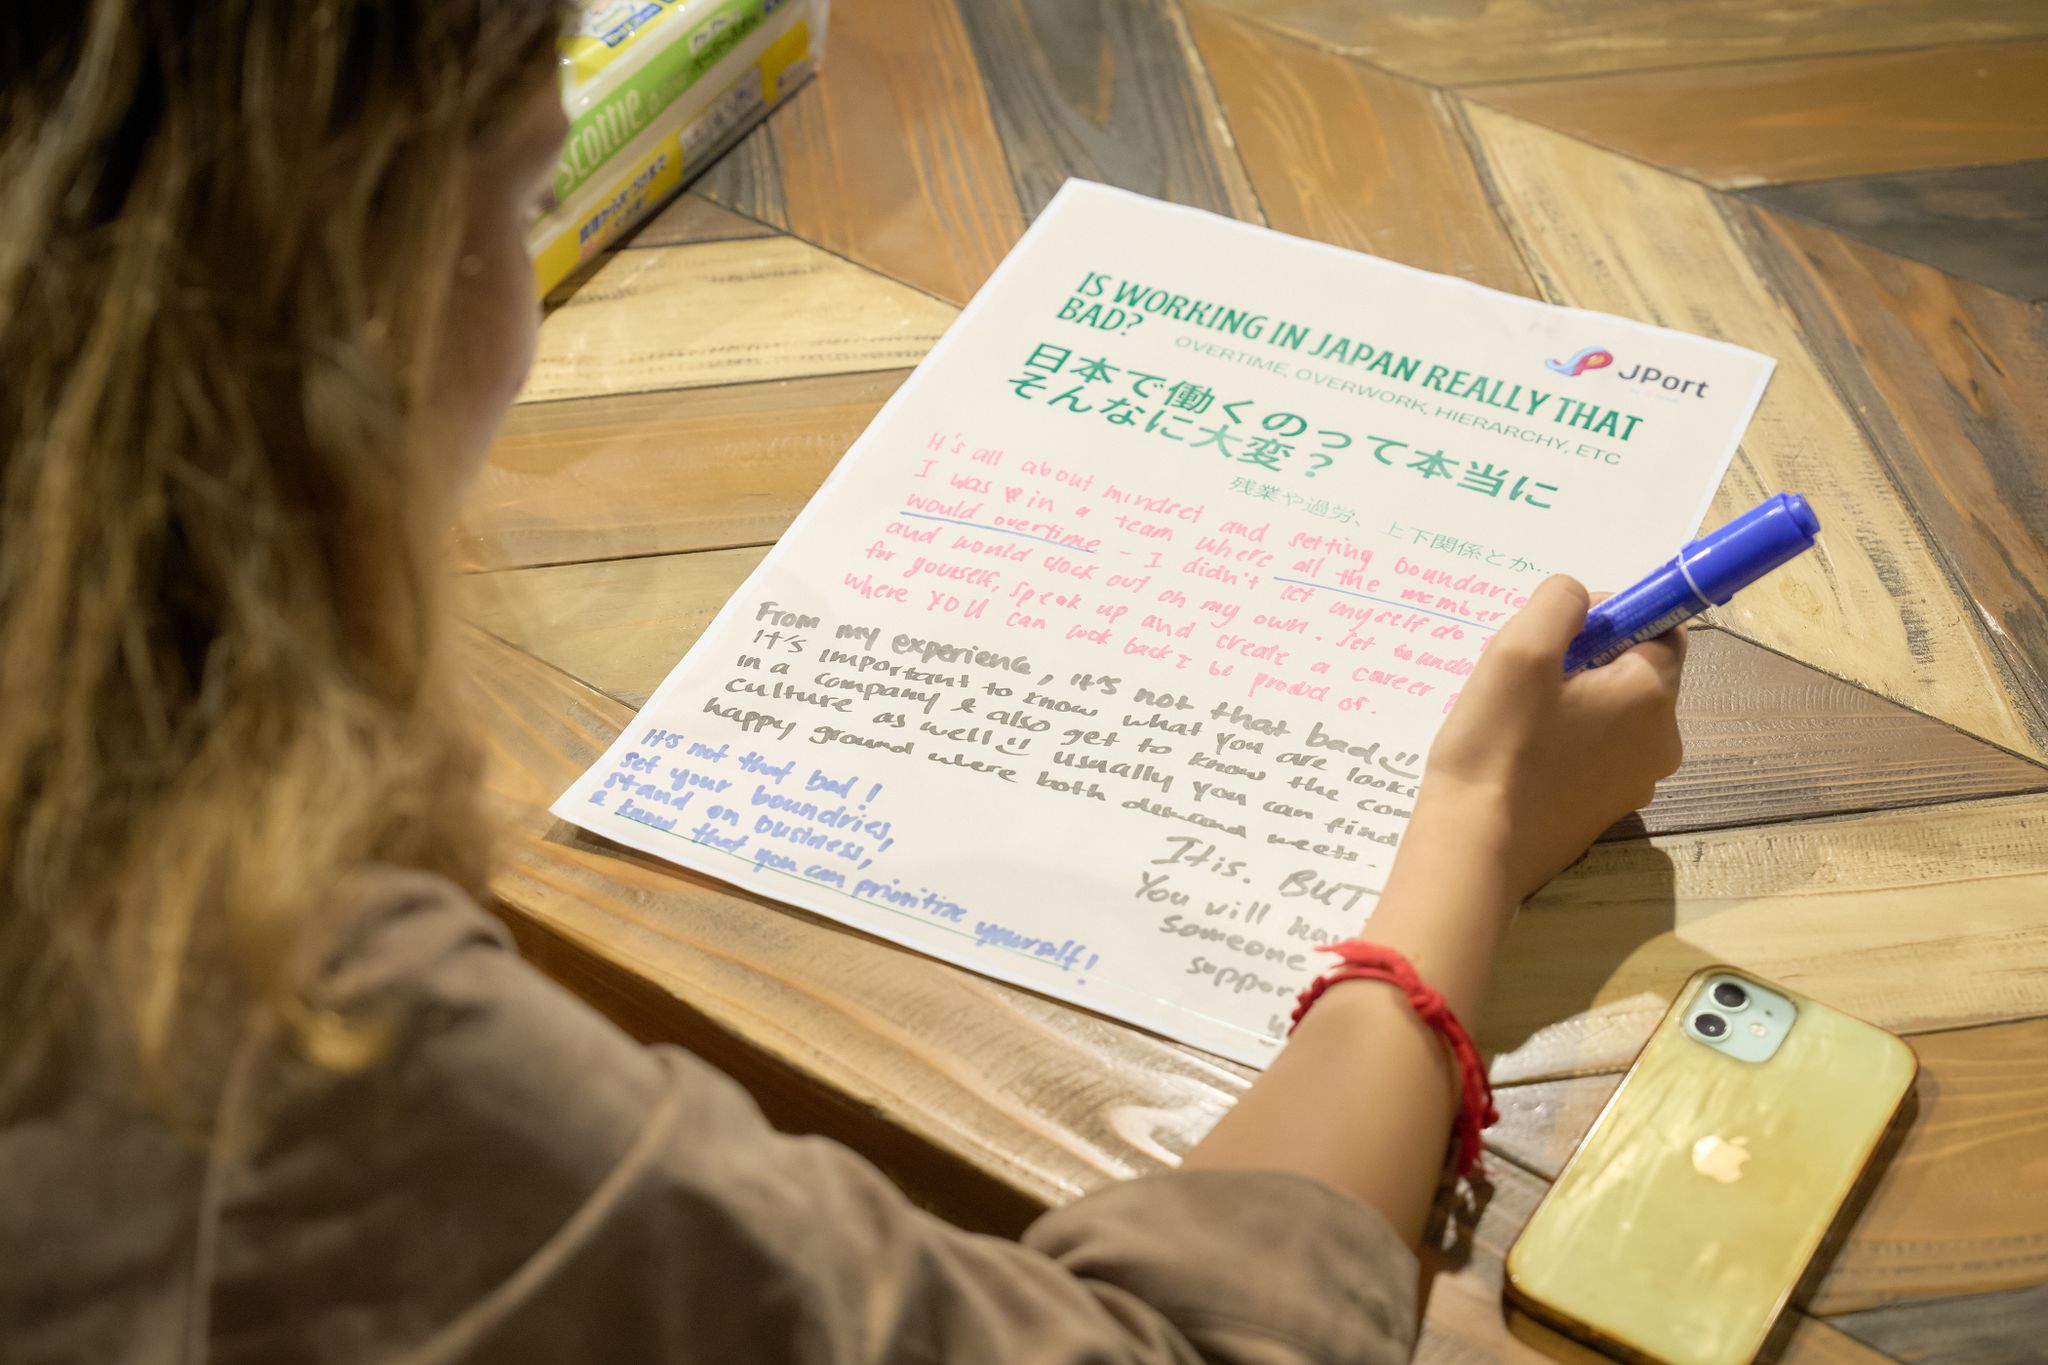 scottie
IS WORKING IN JAPAN REALLY THAT
BAD?
OVERTIME, OVERWORK, HIERARCHY, ETC
JPort
日本で働くのって本当に
そんなに大変？
残業や過労、上下関係とか…
It's all about mindset and setting boundaries
I was in a team where all the members
would overtime - I didn't let myself do
and would clock out on my own. Set
for yourself, speak up and create a career
where YOU can look back & be proud of.
From my experience, it's not that bad
It's important to know what you are
in a company & also get to know the
culture as well usually you can find
happy ground where both demand meets.
It's not that bad!
set your boundries,
stand on business,
& know that you can prioritize yourself!
It is. BUT
You will
someone
BOARD MARKER